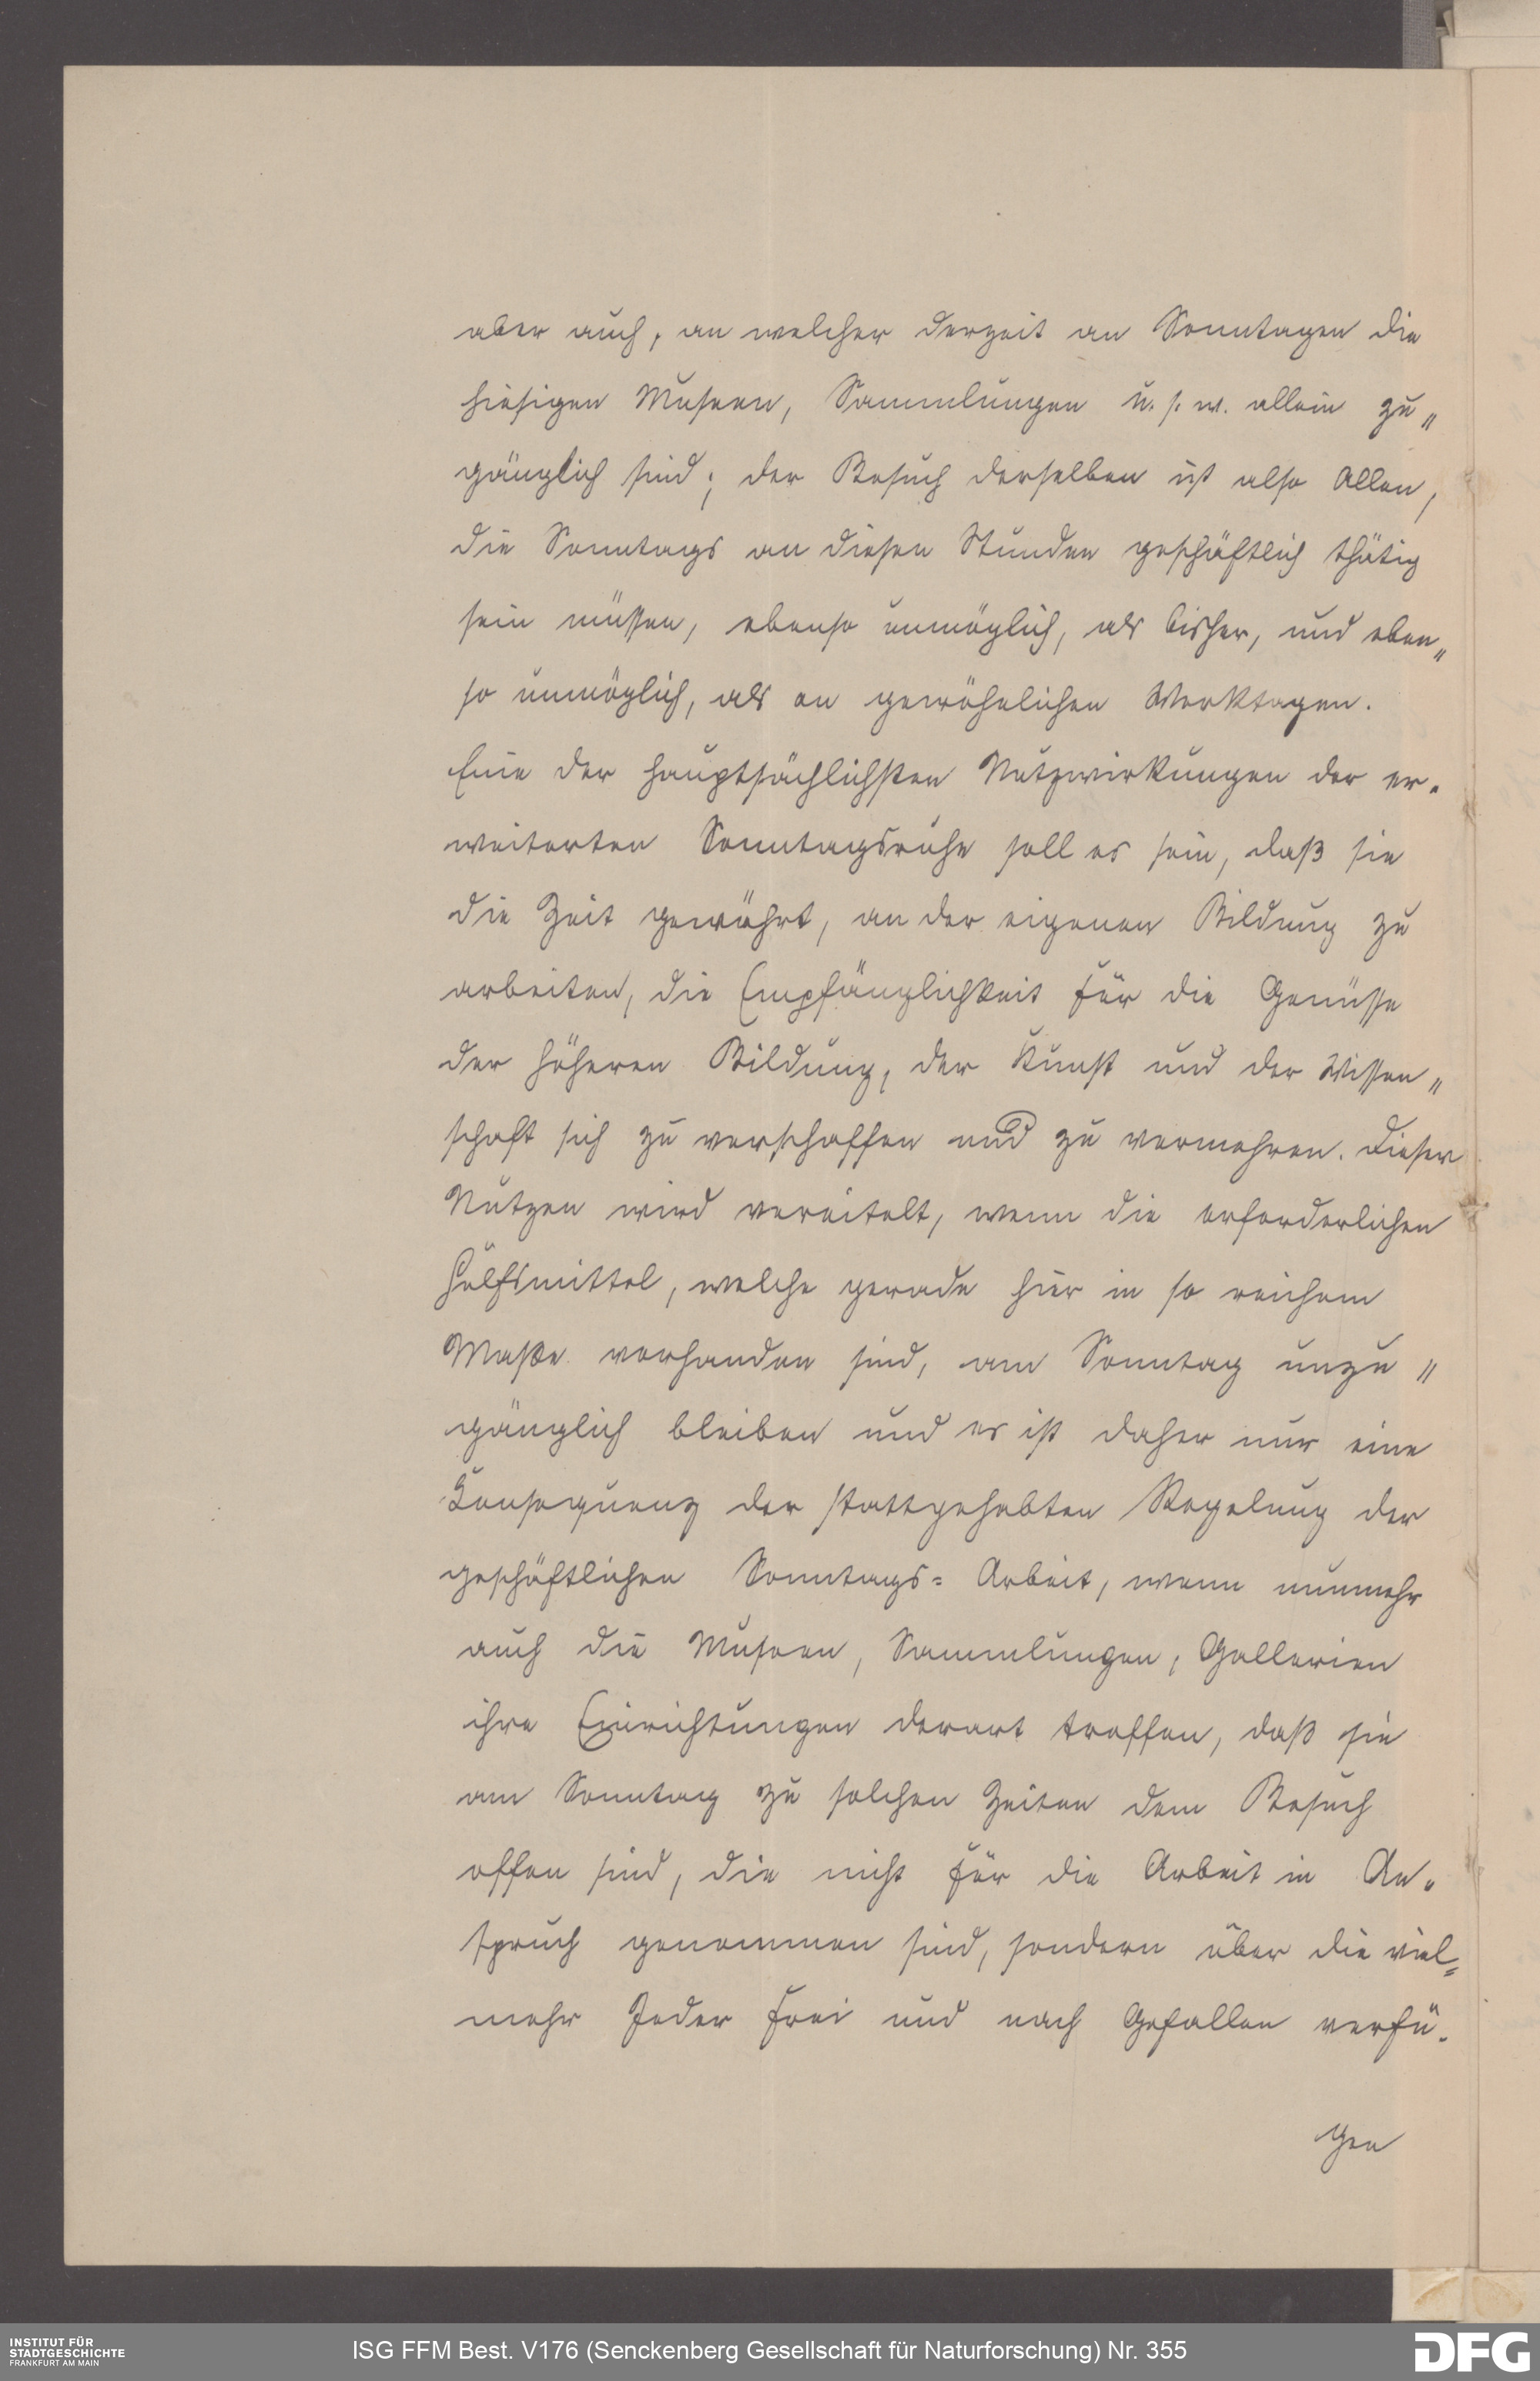 aber auch, an welcher derzeit an Sonntagen die
hiesigen Museen, Sammlungen u. s. w. allein zu„
gänglich sind; der Besuch derselben ist also Allen,
die Sonntags an diesen Stunden geschäftlich thätig
sein müssen, ebenso unmöglich, als bisher, und eben„
so unmöglich, als an gewöhnlichen Werktagen.
Eine der hauptsächlichsten Nutzwirkungen der er-
weiterten Sonntagsruhe soll es sein, daß sie
die Zeit gewährt, an der eigenen Bildung zu
arbeiten, die Empfänglichkeit für die Genüsse
der höheren Bildung, der Kunst und der Wissen„
schaft sich zu verschaffen und zu vermehren. Dieser
Nutzen wird vereitelt, wenn die erforderlichen
Hülfsmittel, welche gerade hier in so reichem
Maße vorhanden sind, am Sonntag unzu„
gänglich bleiben und es ist daher nur eine
Consequenz der stattgehabten Regelung der
geschäftlichen Sonntags= Arbeit, wenn nunmehr
auch die Museen, Sammlungen, Gallerien
ihre Einrichtungen derart treffen, daß sie
am Sonntag zu solchen Zeiten dem Besuch
offen sind, die nicht für die Arbeit in An-
spruch genommen sind, sondern über die viel=
mehr Jeder frei und nach Gefallen verfü-
gen
INSTITUT FÜR
STADTGESCHICHTE
FRANKFURT AM MAIN
ISG FFM Best. V176 (Senckenberg Gesellschaft für Naturforschung) Nr. 355
DFG